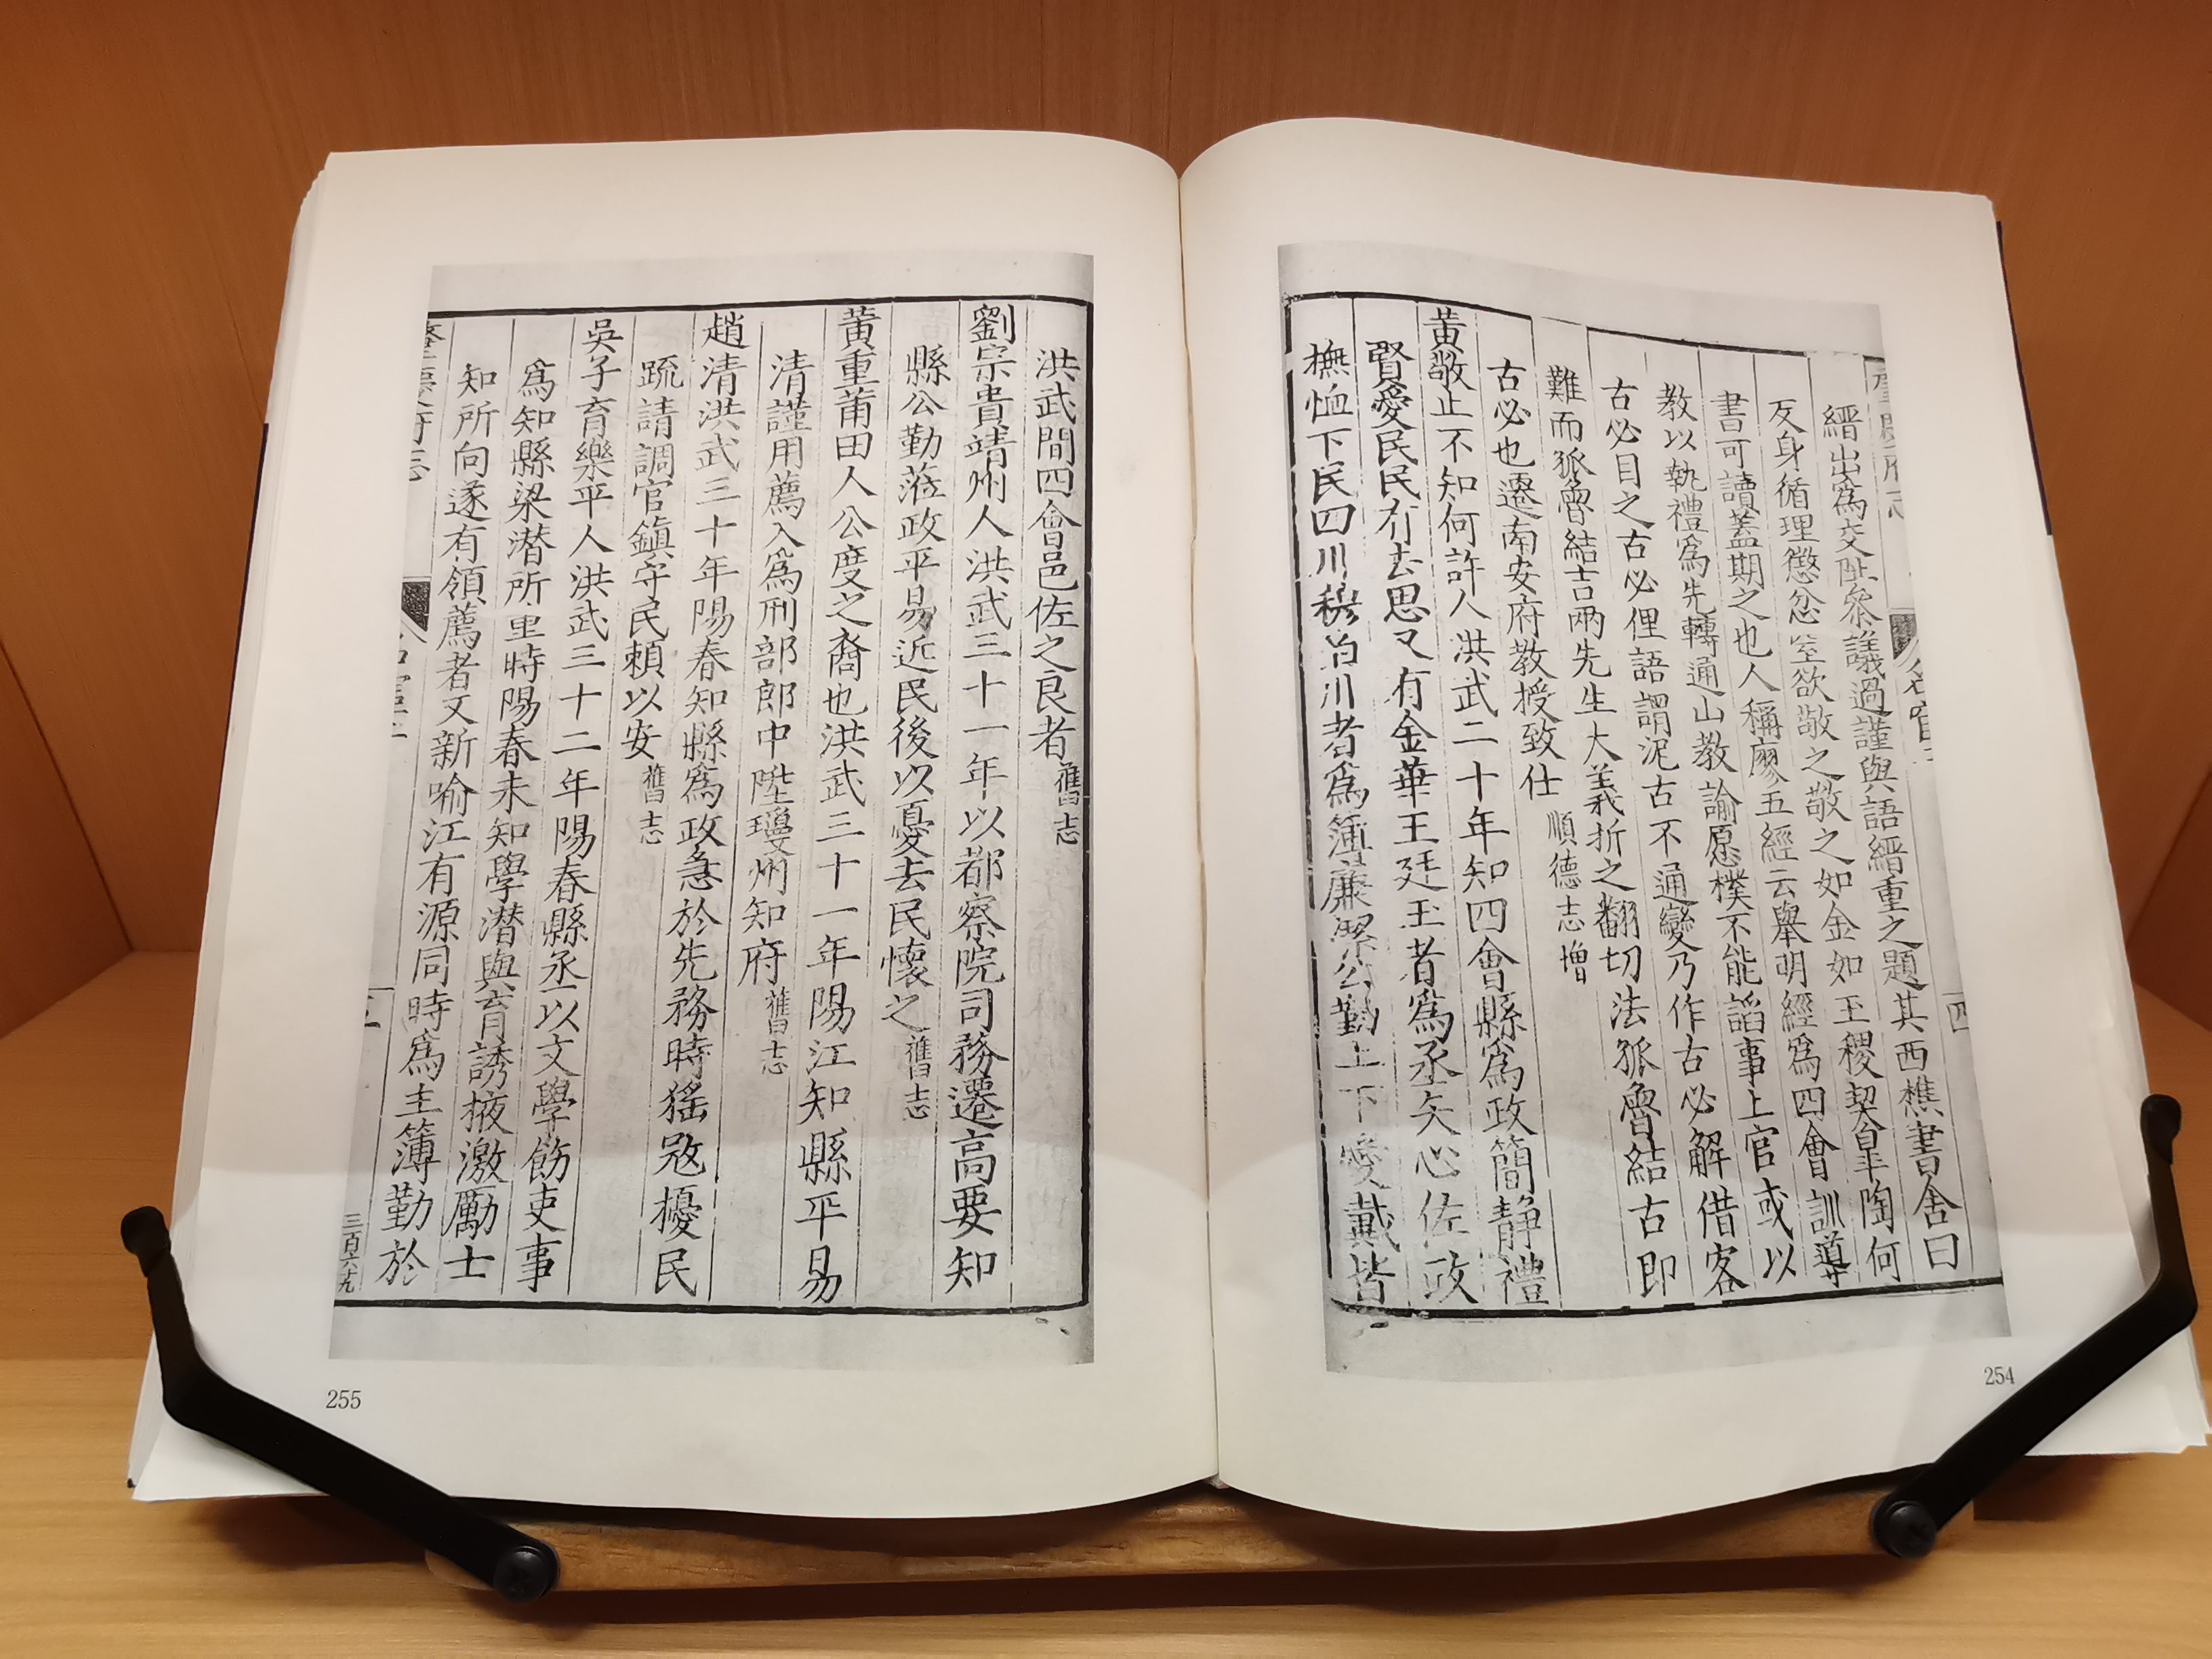 縉出爲交阯叅議過謹與語縉重之題其西樵書舍曰
反身循理懲忿窒欲敬之敬之如金如玉稷契臯陶何
書可讀蓋期之也人稱廖五經云舉明經爲四會訓導
教以執禮爲先轉通山教諭愿樸不能謟事上官或以
古必目之古必俚語謂泥古不通變乃作古必解借客
難而狐魯結吉兩先生大義折之翻切法狐魯結古即
古必也遷南安府教授致仕 順德志增
黃敬止不知何許人洪武二十年知四會縣爲政簡静禮
賢愛民民有去思又有金華王廷玉者爲丞矢心佐政
撫恤下民四川穆伯川者爲簿廉潔公勤上下愛戴皆
四
254
洪武間四會邑佐之良者 舊志
劉宗貴靖州人洪武三十一年以都察院司務遷高要知
縣公勤蒞政平易近民後以憂去民懷之 舊志
黃重莆田人公度之裔也洪武三十一年陽江知縣平易
清謹用薦入爲刑部郎中陞瓊州知府 舊志
趙清洪武三十年陽春知縣爲政急於先務時猺寇擾民
疏請調官鎮守民賴以安 舊志
吳子育樂平人洪武三十二年陽春縣丞以文學飭吏事
爲知縣梁潛所里時陽春未知學潛與育誘掖激勵士
知所向遂有領薦者文新喻江有源同時爲主簿勤於
三百六九
255